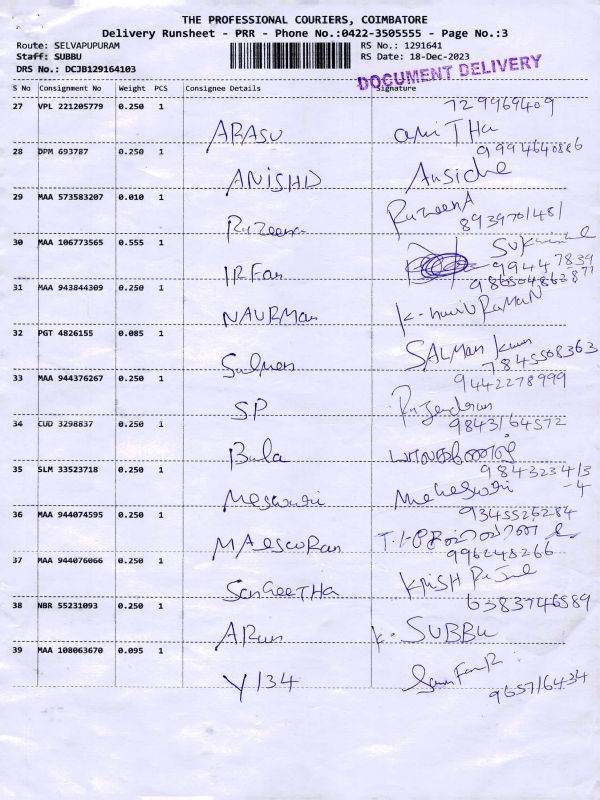 THE PROFESSIONAL COURIERS, COIMBATORE
Delivery Runsheet - PRR - Phone No.:0422-3505555 - Page No.:3
Route: SELVAPUPURAM RS No.: 1291641
Staff: SUBBU RS Date: 18-Dec-2023
DRS No.: DCJB129164103
DOCUMENT DELIVERY
S No Consignment No Weight PCS Consignee Details Signature
27 VPL 221205779 0.250 1 7299969409
ARASU aniTHa
28 DPM 693787 0.250 1 9994640886
ANISHD
29 MAA 573583207 0.010 1 RuzeenA
Ruzeena 8939701481
30 MAA 106773565 0.555 1
IRFan 9944
31 MAA 943844309 0.250 1
NAURMan
32 PGT 4826155 0.085 1 SALMAN Khan
Salman 7845508363
33 MAA 944376267 0.250 1 9442278999
SP Rajendran
34 CUD 3298837 0.250 1 9843164572
Bala
35 SLM 33523718 0.250 1 984323413
Meswari Maheswari -4
36 MAA 944074595 0.250 1 9345526284
37 MAA 944076066 0.250 1 996245266
SanGeeTHa
38 NBR 55231093 0.250 1 6383746589
ARun K. SUBBU
39 MAA 108063670 0.095 1
Y134 9657116434